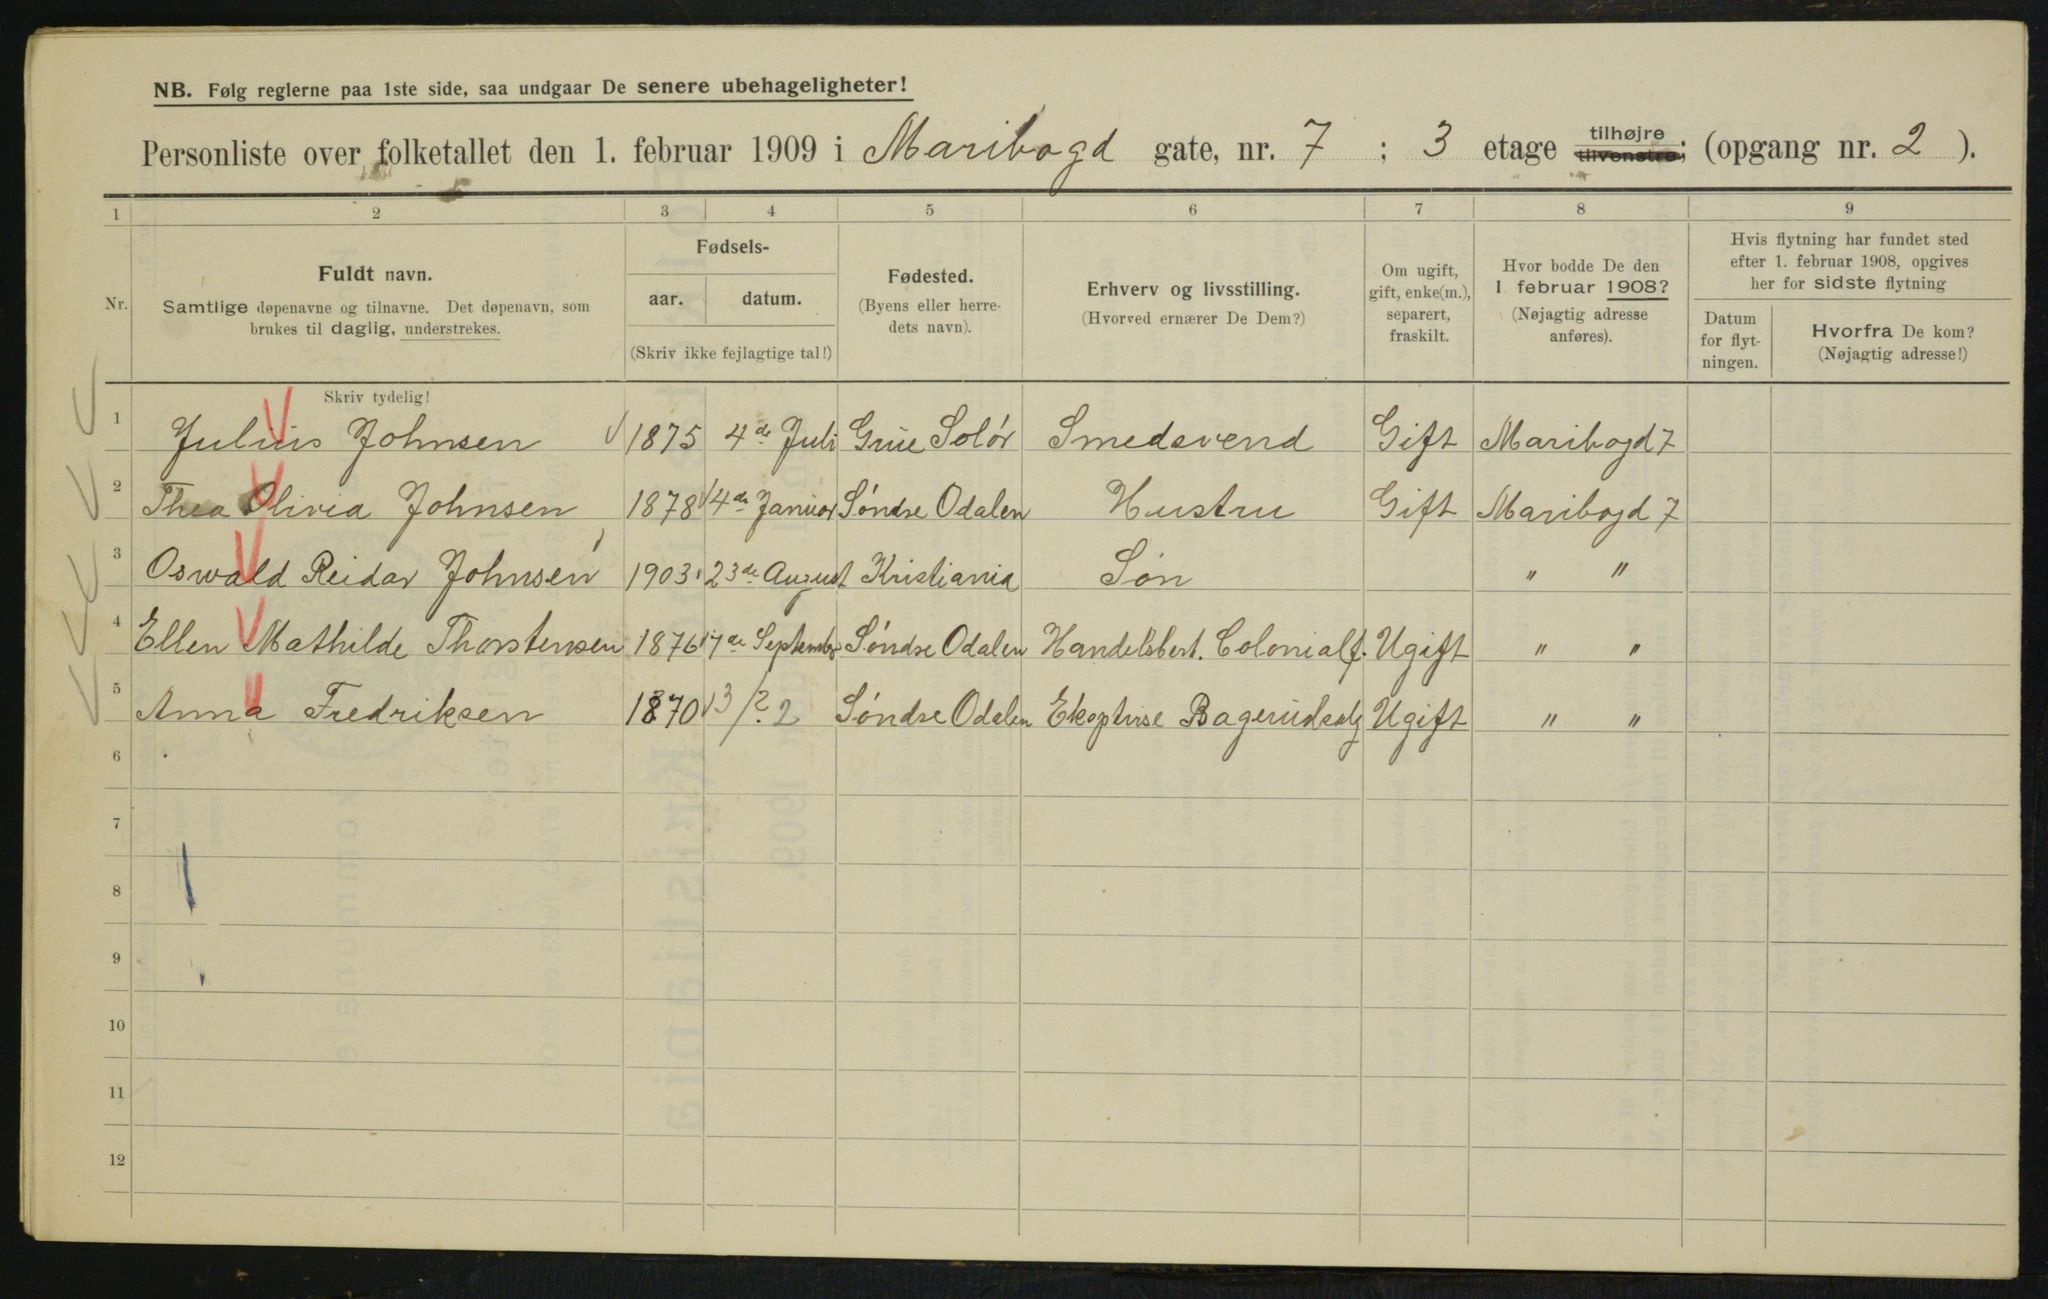 NB. Følg reglerne paa 1ste side, saa undgaar De senere ubehageligheter!
Personliste over folketallet den 1. februar 1909 i Maribogd gate, nr. 7 ; 3 etage tilhøjre tilvenstre; (opgang nr. 2 ).
1 2 3 4 5 6 7 8 9
Nr.
Fuldt navn.
Samtlige døpenavne og tilnavne. Det døpenavn, som
brukes til daglig, understrekes.
Fødsels-
aar. datum.
(Skriv ikke fejlagtige tal!)
Fødested.
(Byens eller herre-
dets navn).
Erhverv og livsstilling.
(Hvorved ernærer De Dem?)
Om ugift,
gift, enke(m.),
separert,
fraskilt.
Hvor bodde De den
1 februar 1908?
(Nøjagtig adresse
anføres).
Hvis flytning har fundet sted
efter 1. februar 1908, opgives
her for sidste flytning
Datum
for flyt-
ningen.
Hvorfra De kom?
(Nøjagtig adresse!)
Skriv tydelig!
1 Julius Johnsen 1875 4de Juli Grue Solór Smedsvend Gift Maribogd 7
2 Thea Olivia Johnsen 1878 4de Januar Sóndre Odalen Hustru Gift Maribogd 7
3 Oswald Reidar Johnsen 1903 23de August Kristiania Són " "
4 Ellen Mathilde Thorstensen 1876 7de September Sóndre Odalen Handelsbest. Colonialf. Ugift " "
5 Anna Fredriksen 1870 13/2 2 Sóndre Odalen Bagerudsalg Ugift " "
6
7
8
9
10
11
12